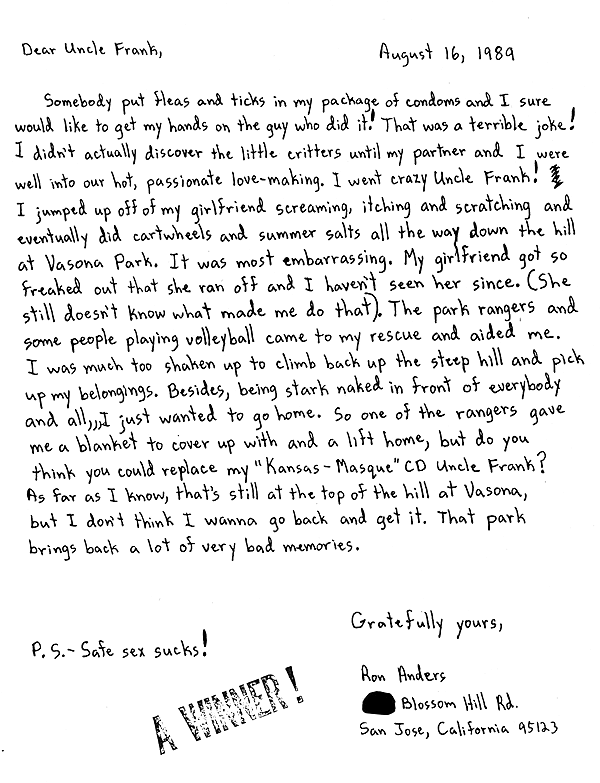 Dear Uncle Frank,
August 16, 1989
Somebody put fleas and ticks in my package of condoms and I sure
would like to get my hands on the guy who did it! That was a terrible joke!
I didn't actually discover the little critters until my partner and I were
well into our hot, passionate love-making. I went crazy Uncle Frank!
I jumped up off of my girlfriend screaming, itching and scratching and
eventually did cartwheels and summer salts all the way down the hill
at Vasona Park. It was most embarrassing. My girlfriend got so
freaked out that she ran off and I haven't seen her since. (She
still doesn't know what made me do that). The park rangers and
some people playing volleyball came to my rescue and aided me.
I was much too shaken up to climb back up the steep hill and pick
up my belongings. Besides, being stark naked in front of everybody
and all,,,I just wanted to go home. So one of the rangers gave
me a blanket to cover up with and a lift home, but do you
think you could replace my "Kansas-Masque" CD Uncle Frank?
As far as I know, that's still at the top of the hill at Vasona,
but I don't think I wanna go back and get it. That park
brings back a lot of very bad memories.
Gratefully yours,
P.S.- Safe sex sucks!
Ron Anders
Blossom Hill Rd.
San Jose, California 95123
A WINNER!